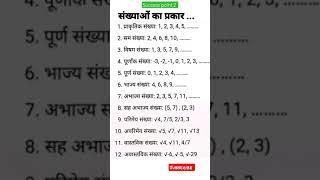 Success point 2
संख्याओं का प्रकार ...
1. प्राकृतिक संख्या: 1, 2, 3, 4, 5, ........
2. सम संख्या: 2, 4, 6, 8, 10, .......
3. विषम संख्या: 1, 3, 5, 7, 9, .......
4. पूर्णांक संख्या: -3, -2, -1, 0, 1, 2, 3, .......
5. पूर्ण संख्या: 0, 1, 2, 3, 4, ........
6. भाज्य संख्या: 4, 6, 8, 9, .......
7. अभाज्य संख्या: 2, 3, 5, 7, 11, .......
8. सह अभाज्य संख्या: (5, 7) , (2, 3)
9. परिमेय संख्या: √4, 7/5, 2/3, 3
10. अपरिमेय संख्या: √5, √7, √11, √13
11. वास्तविक संख्या: √4, √11, 4/7
12. अवास्तविक संख्या: √-6, √-5, √-29
SUBSCRIBE